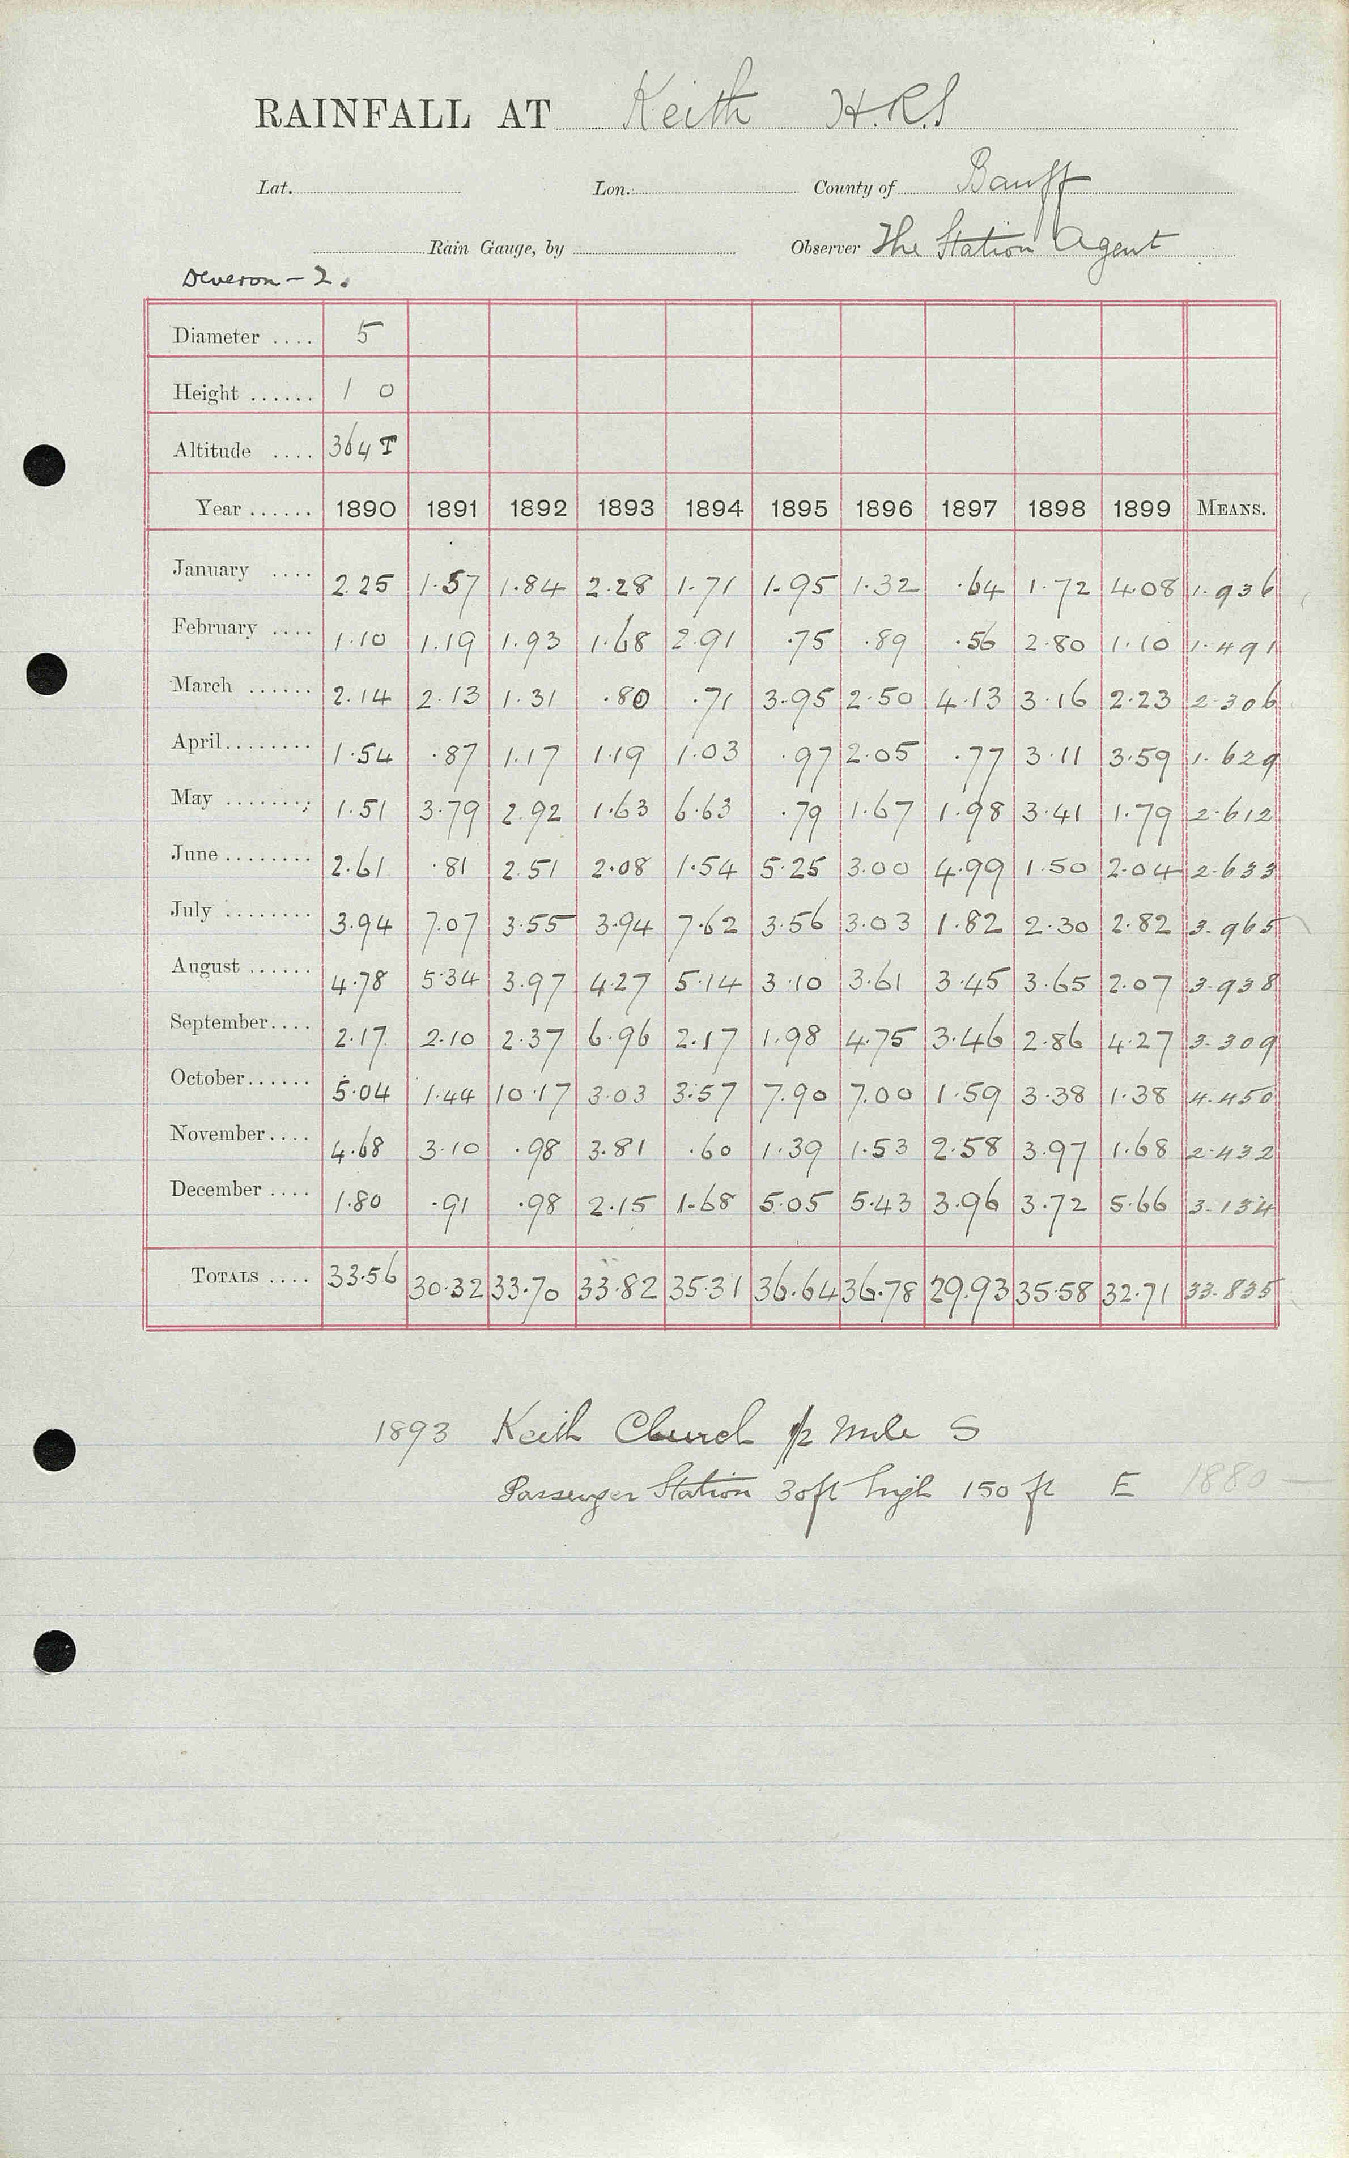 RAINFALL AT Keith H.R.S
Lat. Lon. County of Banff
Rain Gauge, by Observer The Station Agent
Deveron - 2.
Diameter .... 5
Height ...... 1 0
Altitude .... 364 T
Year ...... 1890 1891 1892 1893 1894 1895 1896 1897 1898 1899 MEANS.
January .... 2.25 1.57 1.84 2.28 1.71 1.95 1.32 .64 1.72 4.08 1.936
February .... 1.10 1.19 1.93 1.68 2.91 .75 .89 .56 2.80 1.10 1.491
March ...... 2.14 2.13 1.31 .80 .71 3.95 2.50 4.13 3.16 2.23 2.306
April........ 1.54 .87 1.17 1.19 1.03 .97 2.05 .77 3.11 3.59 1.629
May ........ 1.51 3.79 2.92 1.63 6.63 .79 1.67 1.98 3.41 1.79 2.612
June ........ 2.61 .81 2.51 2.08 1.54 5.25 3.00 4.99 1.50 2.04 2.633
July ........ 3.94 7.07 3.55 3.94 7.62 3.56 3.03 1.82 2.30 2.82 3.965
August ...... 4.78 5.34 3.97 4.27 5.14 3.10 3.61 3.45 3.65 2.07 3.938
September.... 2.17 2.10 2.37 6.96 2.17 1.98 4.75 3.46 2.86 4.27 3.309
October...... 5.04 1.44 10.17 3.03 3.57 7.90 7.00 1.59 3.38 1.38 4.450
November.... 4.68 3.10 .98 3.81 .60 1.39 1.53 2.58 3.97 1.68 2.432
December .... 1.80 .91 .98 2.15 1.68 5.05 5.43 3.96 3.72 5.66 3.134
TOTALS .... 33.56 30.32 33.70 33.82 35.31 36.64 36.78 29.93 35.58 32.71 33.835
1893 Keith Church 1/2 mile S
Passenger Station 30ft high 150 ft E 1880 —